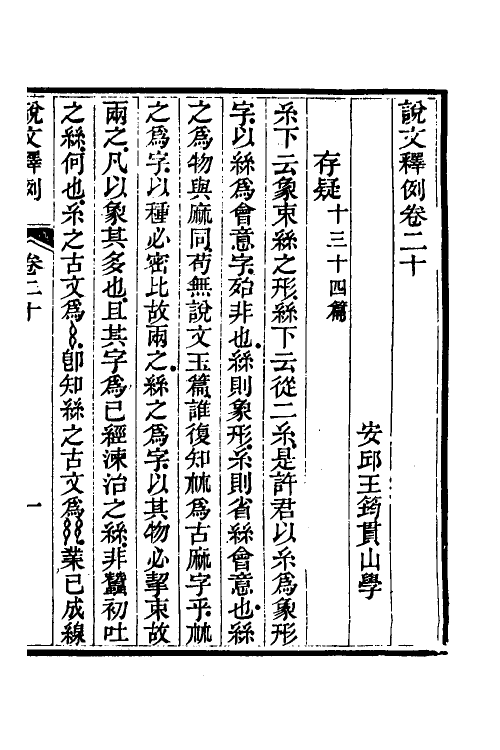 說文釋例卷二十
安邱王筠貫山學
存疑十三十四篇
糸下云象束絲之形絲下云從二糸是許君以糸爲象形
字以絲爲會意字殆非也絲則象形糸則省絲會意也絲
之爲物與麻同苟無說文玉篇誰復知𣏟爲古麻字乎𣏟
之爲字以種必密比故兩之絲之爲字以其物必挈束故
兩之凡以象其多也且其字爲已經湅治之絲非蠶初吐
之絲何也糸之古文爲𢆯卽知絲之古文爲業已成線
說文釋例 卷二十 一